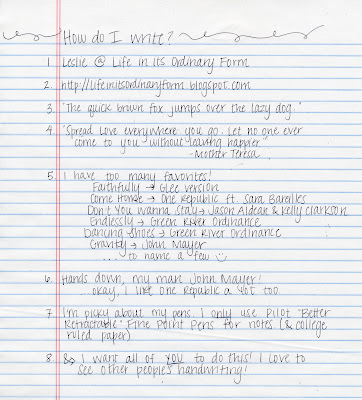 How do I write?
1. Leslie @ Life in its Ordinary Form
2. http://lifeinitsordinaryform.blogspot.com
3. "The quick brown fox jumps over the lazy dog."
4. "Spread Love everywhere you go. Let no one ever
come to you without leaving happier."
-Mother Teresa
5. I have too many favorites!
Faithfully → Glee version
Come Home → One Republic ft. Sara Bareilles
Don't You Wanna Stay → Jason Aldean & Kelly Clarkson
Endlessly → Green River Ordinance
Dancing Shoes → Green River Ordinance
Gravity → John Mayer
... to name a few ☺
6. Hands down, my man John Mayer!
... okay, I like One Republic a lot too.
7. I'm picky about my pens. I only use Pilot "Better
Retractable" Fine Point Pens for notes. (& college
ruled paper)
8. & I want all of you to do this! I love to
see other people's handwriting!